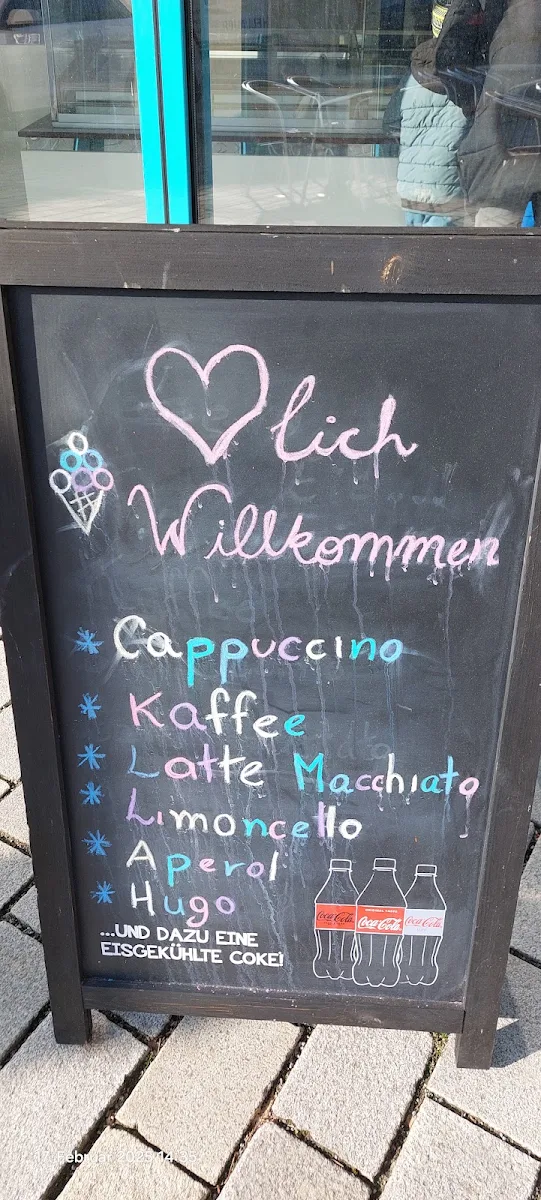 lich
Willkommen
* Cappuccino
* Kaffee
* Latte Macchiato
* Limoncello
* Aperol
* Hugo
...UND DAZU EINE
EISGEKÜHLTE COKE!
Coca-Cola Coca-Cola Coca-Cola